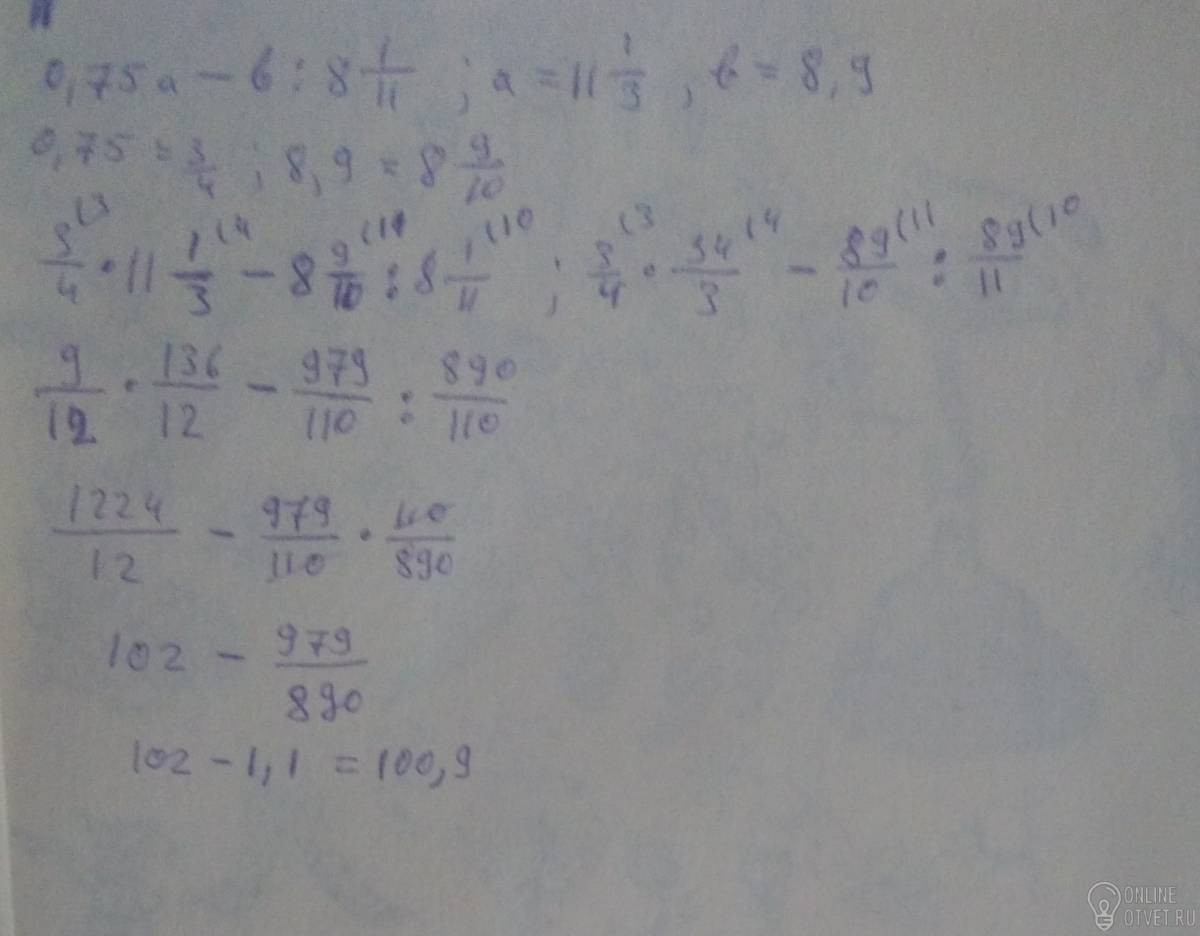 0,75a - b : 8 1/11 ; a = 11 1/3 , b = 8,9
0,75 = 3/4 ; 8,9 = 8 9/10
3/4 (3 · 11 1/3 (4 - 8 9/10 (11 : 8 1/11 (10 ; 3/4 (3 · 34/3 (4 - 89/10 (11 : 89/11 (10
9/12 · 136/12 - 979/110 : 890/110
1224/12 - 979/110 · 110/890
102 - 979/890
102 - 1,1 = 100,9
ONLINE
OTVET.RU